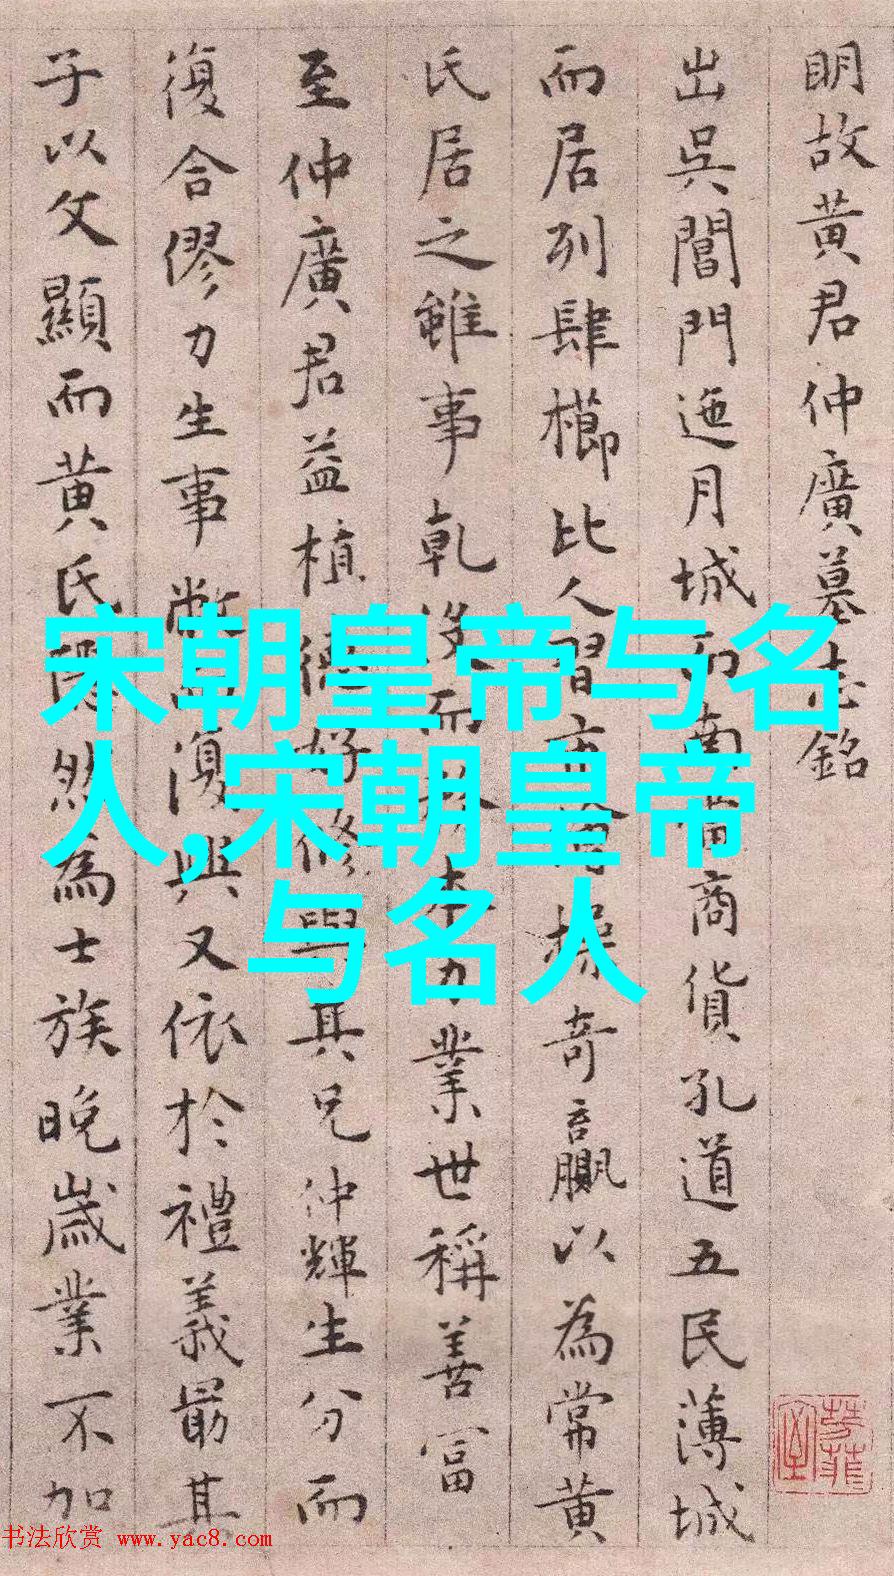 宋朝皇帝与名
人,宋朝皇帝
与名人
明故黄君仲廣墓志銘
出吳閶門迤月城而南皆商貨孔道五民薄城
而居列肆櫛比人習市操奇贏以為常黄
氏居之雖事乾没而本力業世稱善富
至仲廣君益植德好修與其兄仲輝生分而
復合僇力生事敝而復興又依於禮義最其
子以文顯而黄氏隱然為士族晚歲業不加
书法欣赏 www.yac8.com